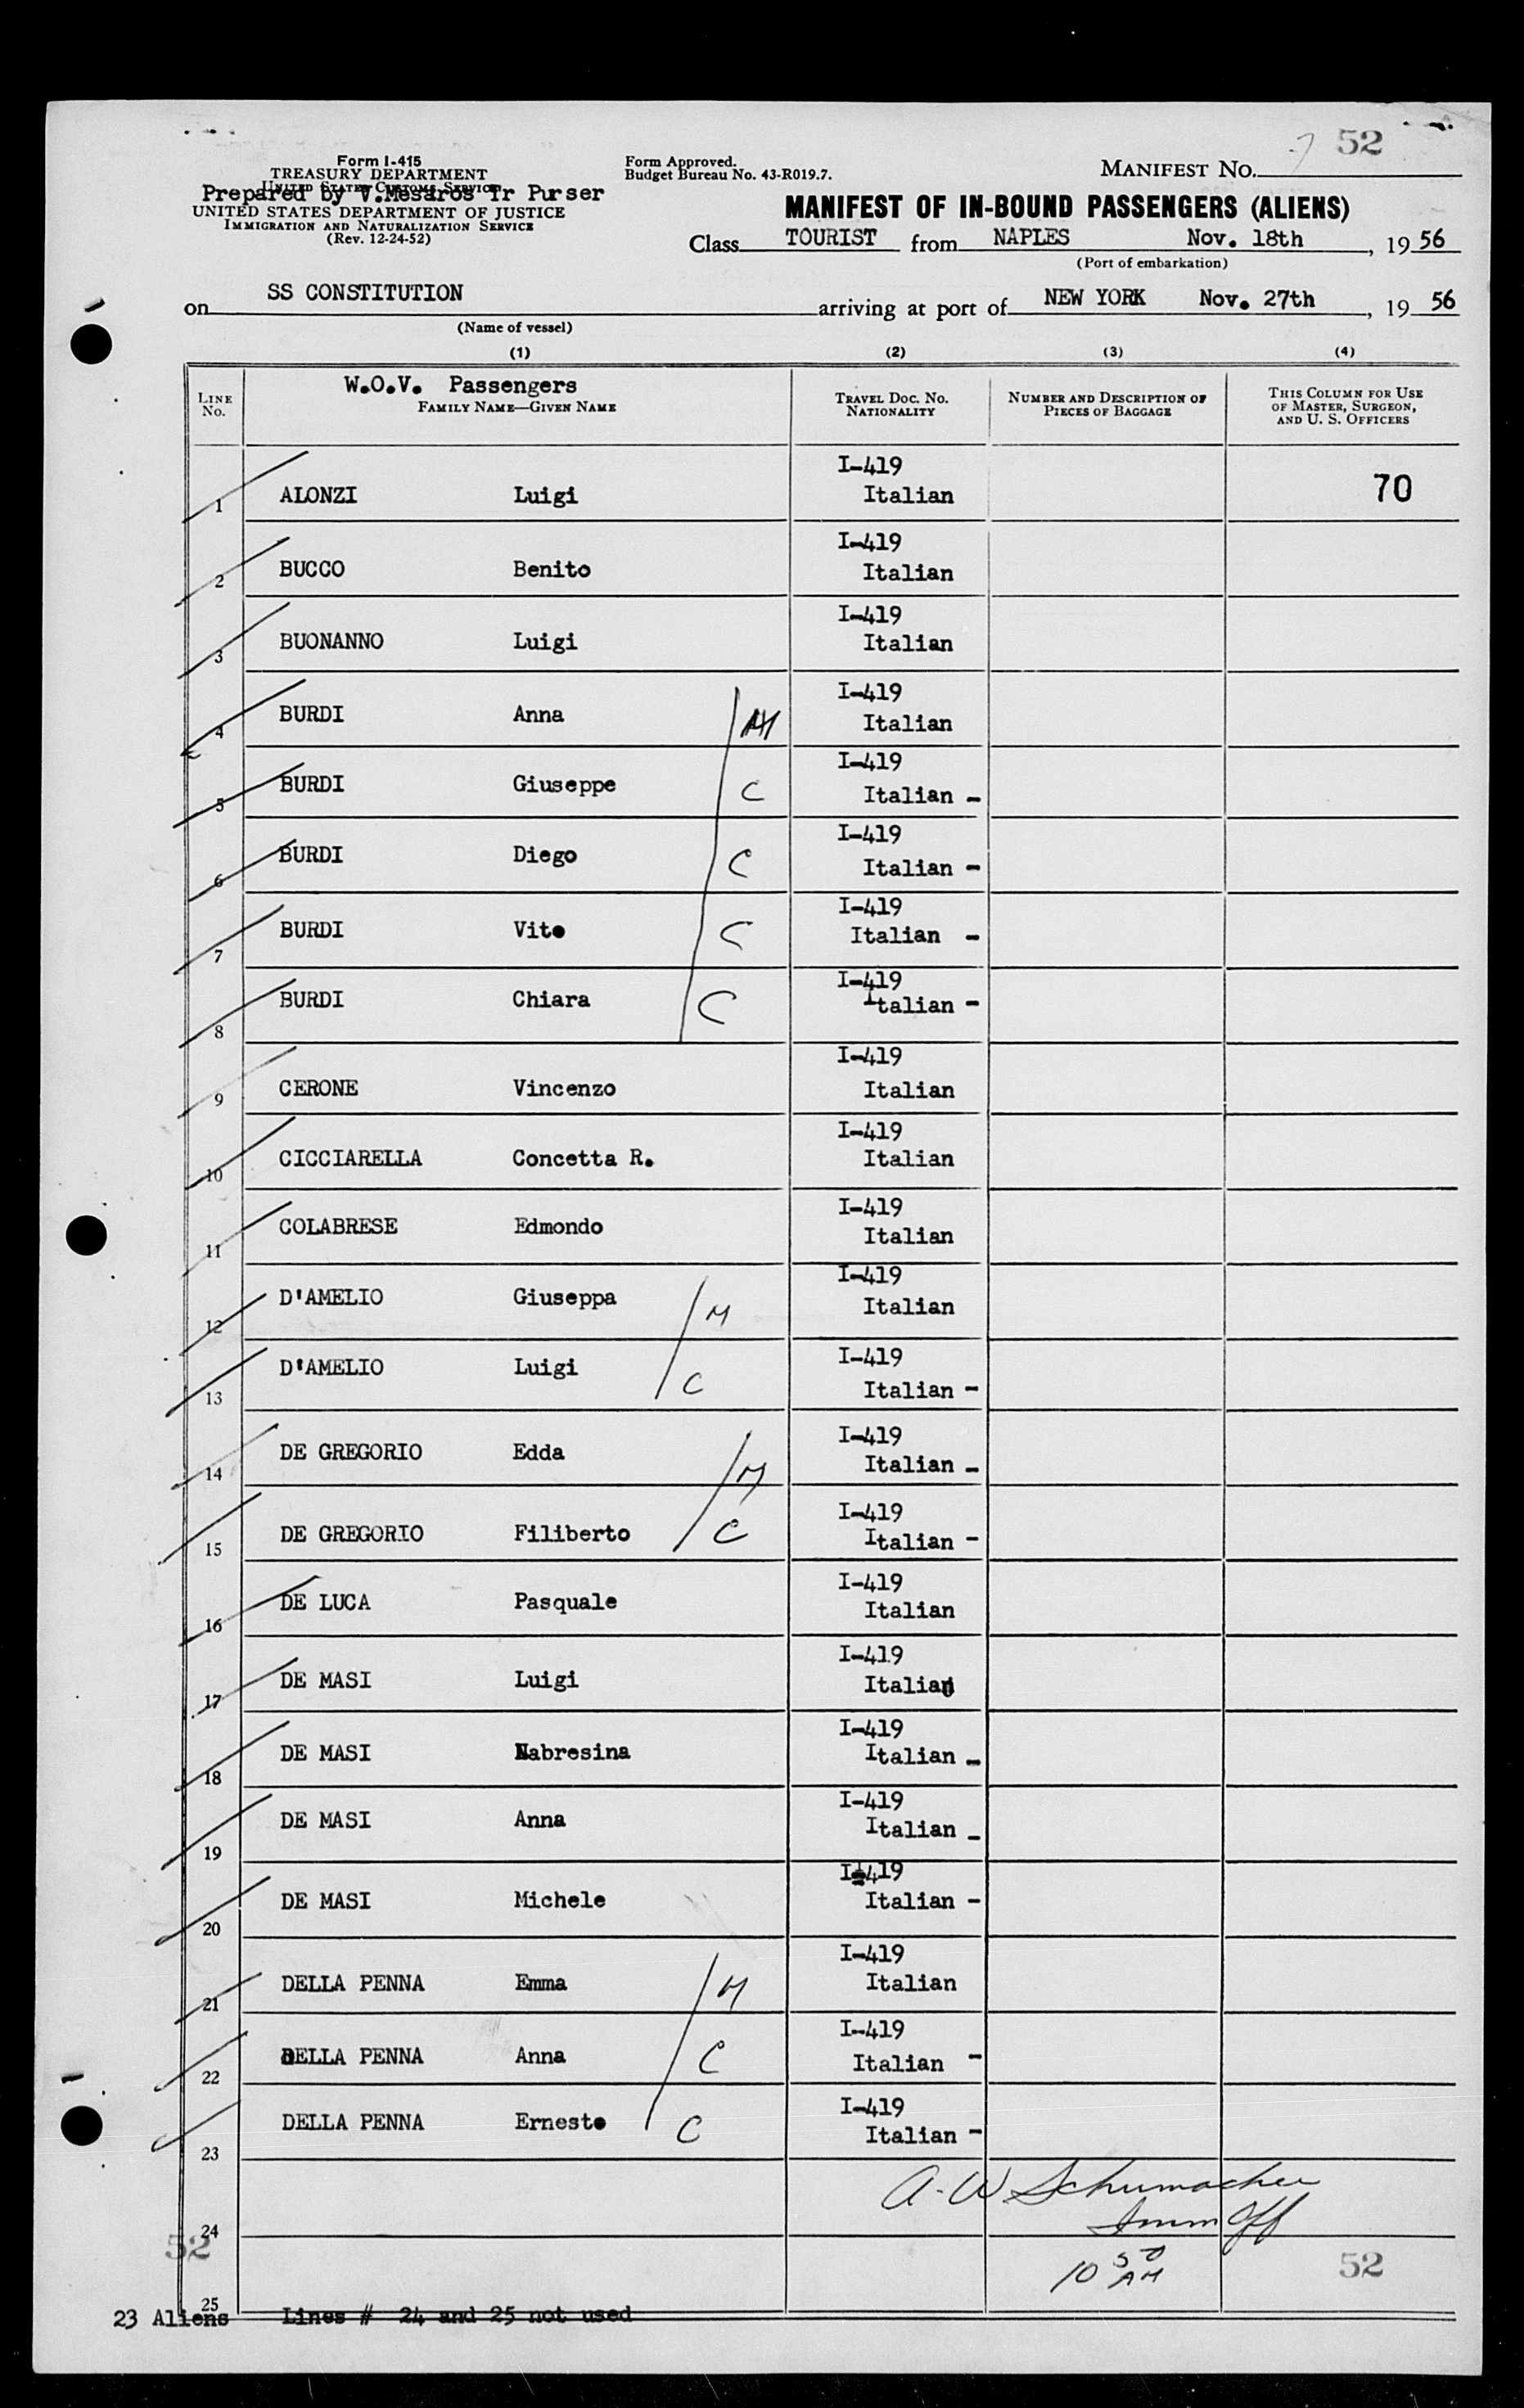 Form I-415
TREASURY DEPARTMENT
UNITED STATES CUSTOMS SERVICE
Prepared by V.Mesaros Tr Purser
UNITED STATES DEPARTMENT OF JUSTICE
IMMIGRATION AND NATURALIZATION SERVICE
(Rev. 12-24-52)
Form Approved.
Budget Bureau No. 43-R019.7.
MANIFEST NO. 7 52
MANIFEST OF IN-BOUND PASSENGERS (ALIENS)
Class TOURIST from NAPLES Nov. 18th, 19 56
(Port of embarkation)
on SS CONSTITUTION arriving at port of NEW YORK Nov. 27th, 19 56
(Name of vessel)
(1) (2) (3) (4)
LINE No.
W.O.V. Passengers
FAMILY NAME—GIVEN NAME
TRAVEL DOC. NO. NATIONALITY
NUMBER AND DESCRIPTION OF PIECES OF BAGGAGE
THIS COLUMN FOR USE OF MASTER, SURGEON, AND U. S. OFFICERS
1 ALONZI Luigi I-419 Italian 70
2 BUCCO Benito I-419 Italian
3 BUONANNO Luigi I-419 Italian
4 BURDI Anna I-419 Italian
5 BURDI Giuseppe C I-419 Italian -
6 BURDI Diego C I-419 Italian -
7 BURDI Vito C I-419 Italian -
8 BURDI Chiara C I-419 Italian -
9 CERONE Vincenzo I-419 Italian
10 CICCIARELLA Concetta R. I-419 Italian
11 COLABRESE Edmondo I-419 Italian
12 D'AMELIO Giuseppa M I-419 Italian
13 D'AMELIO Luigi C I-419 Italian -
14 DE GREGORIO Edda M I-419 Italian -
15 DE GREGORIO Filiberto C I-419 Italian -
16 DE LUCA Pasquale I-419 Italian
17 DE MASI Luigi I-419 Italian
18 DE MASI Nabresina I-419 Italian -
19 DE MASI Anna I-419 Italian -
20 DE MASI Michele I-419 Italian -
21 DELLA PENNA Emma M I-419 Italian
22 DELLA PENNA Anna C I-419 Italian -
23 DELLA PENNA Ernesto C I-419 Italian -
A. W Schumacher
Imm Off
24
52
10 50 AM
52
25
23 Aliens Lines # 24 and 25 not used